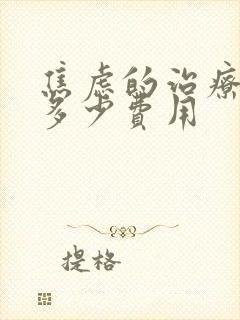 焦虑的治療
多少費用
提格